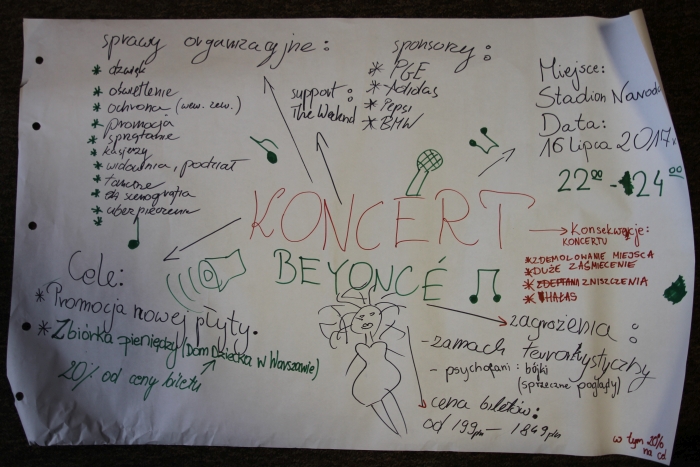 sprawy organizacyjne:
* dźwięk
* oświetlenie
* ochrona (wew. zew.)
* promocja
* sprzątanie
* kasjerzy
* widownia, podział
* tancerze
* scenografia
* ubezpieczenie
*
support:
The Weekend
sponsorzy:
* PGE
* Adidas
* Pepsi
* BMW
Miejsce:
Stadion Narodo
Data:
16 lipca 2017r
22⁰⁰ - 24⁰⁰
KONCERT
BEYONCÉ
Konsekwencje:
KONCERTU
* ZDEMOLOWANIE MIEJSCA
* DUŻE ZAŚMIECENIE
* ZNISZCZENIA
* HAŁAS
Cele:
* Promocja nowej płyty.
* Zbiórka pieniędzy (Dom Dziecka w Warszawie)
20% od ceny biletu
zagrożenia:
- zamach terrorystyczny
- psychofani: bójki
(sprzeczne poglądy)
cena biletów:
od 199 pln - 1849 pln
w tym 20%
na cel